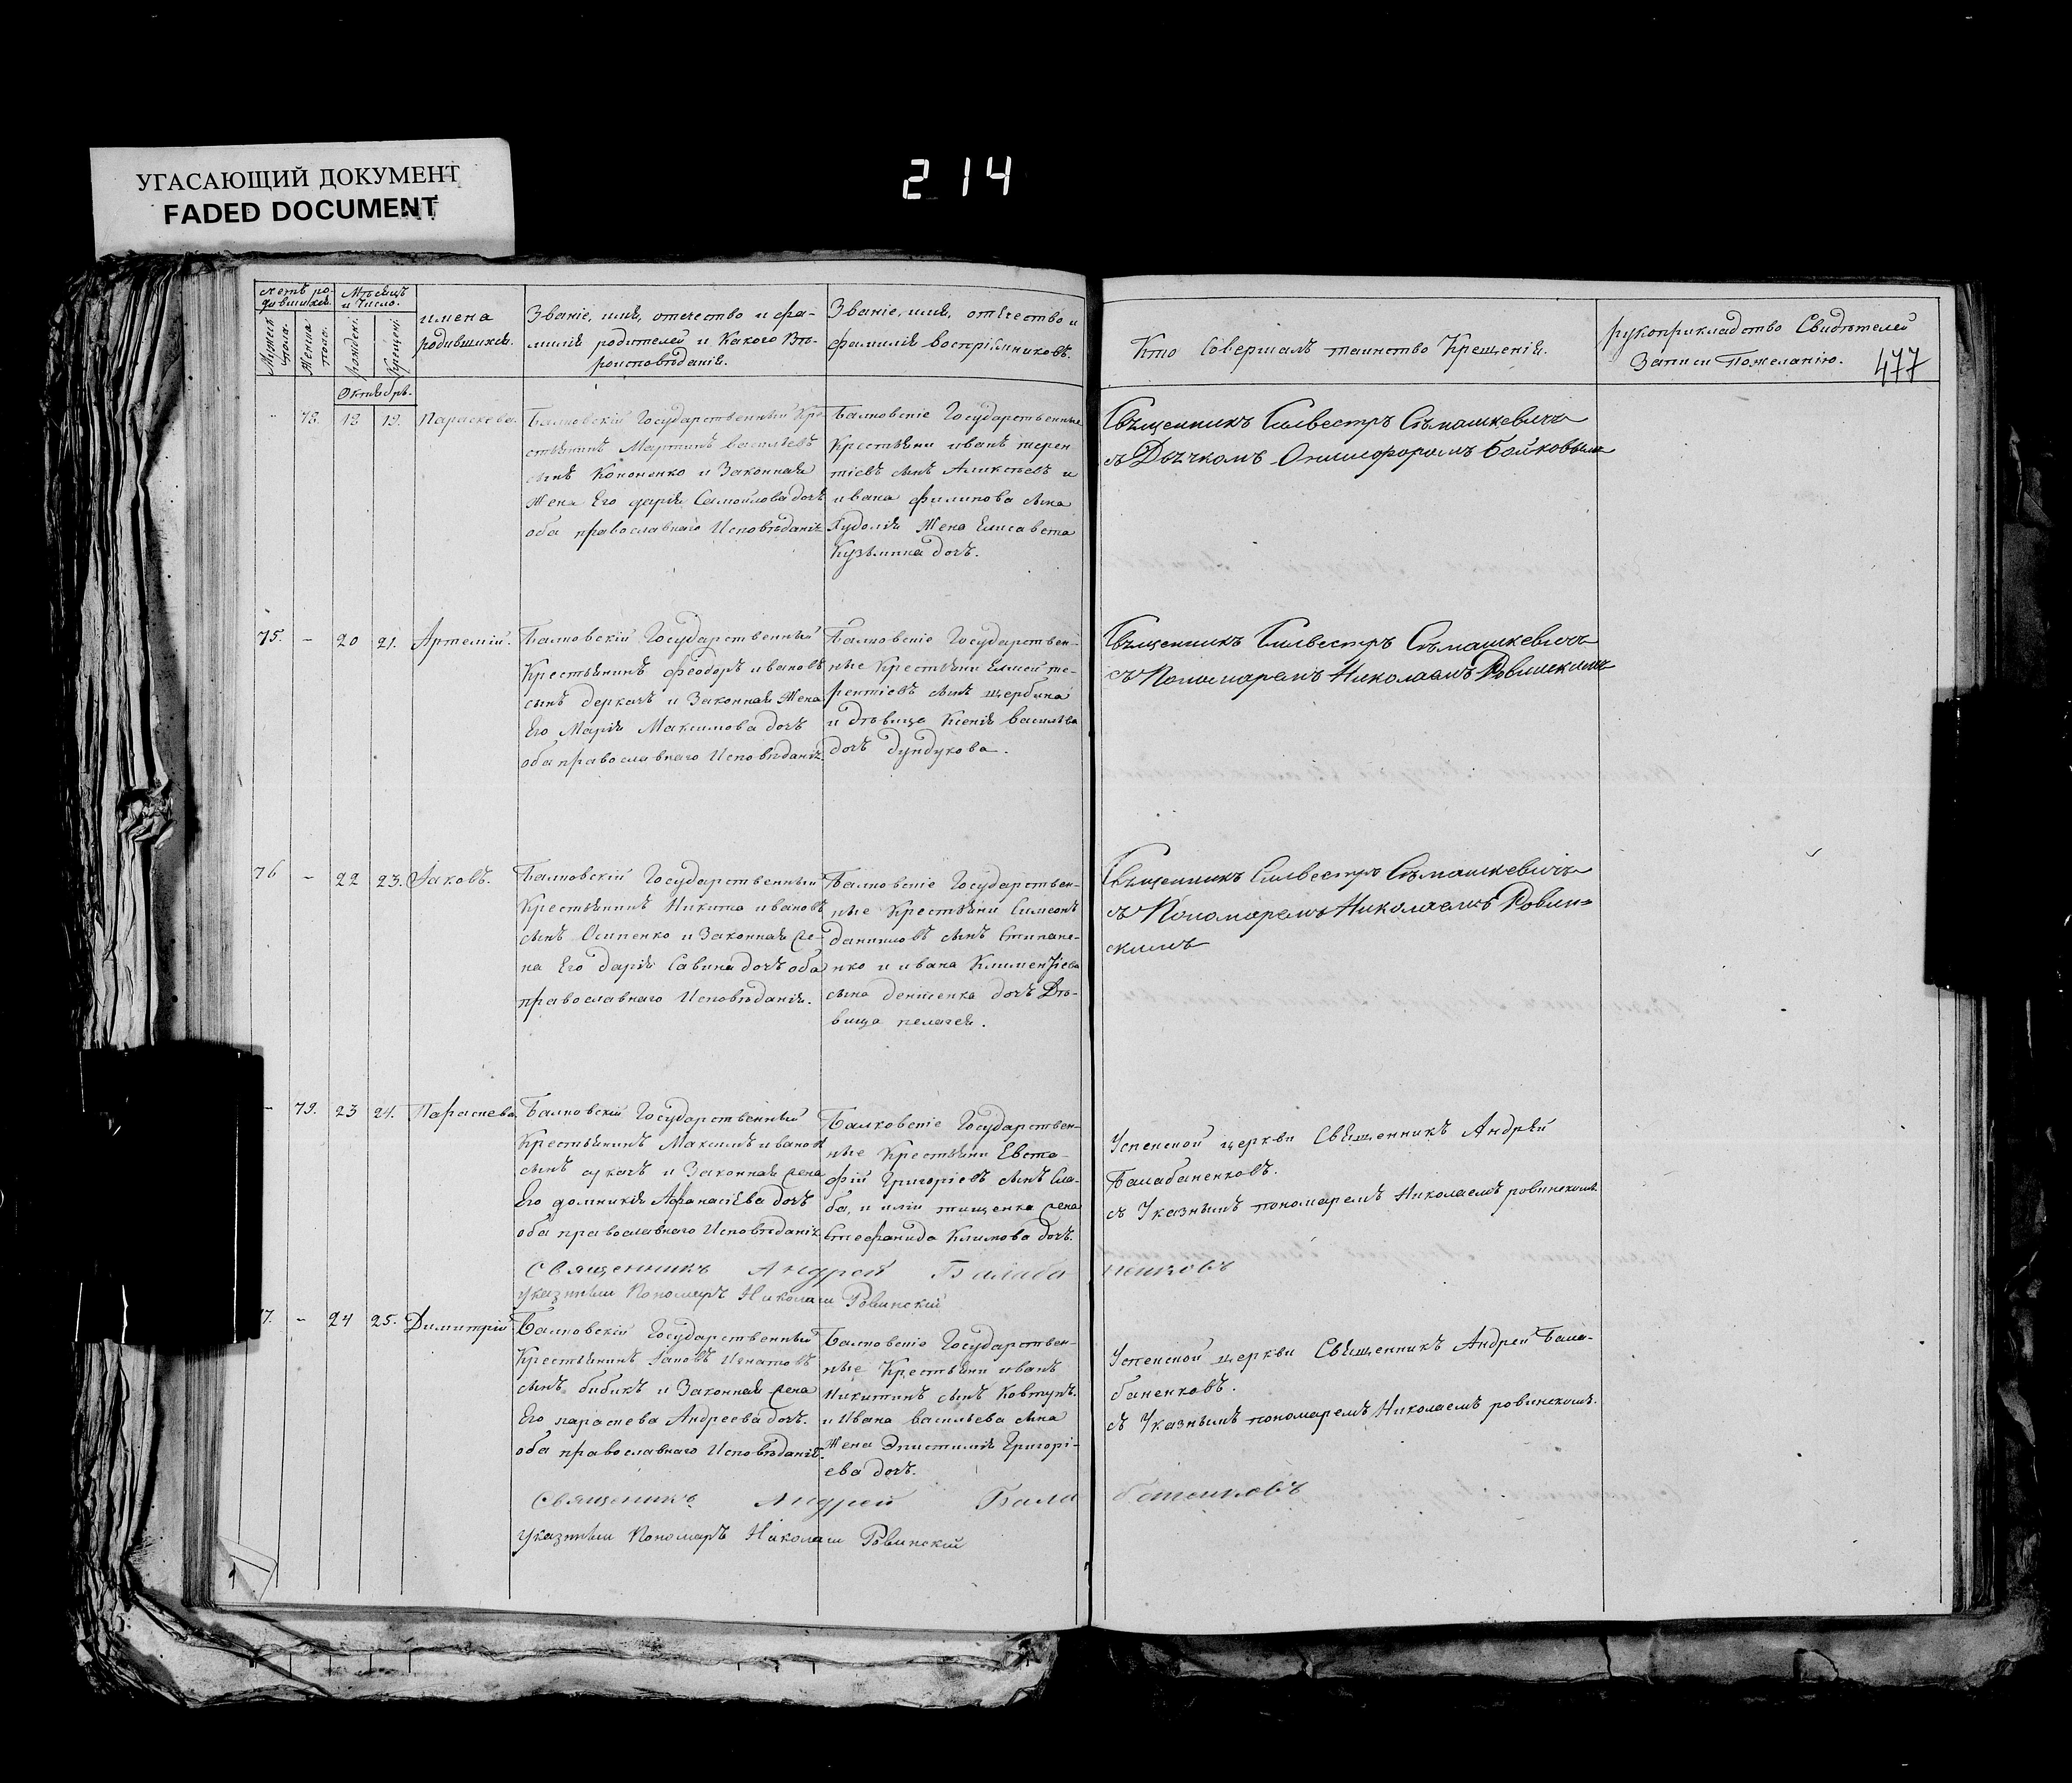 УГАСАЮЩИЙ ДОКУМЕНТ
FADED DOCUMENT
214
счетъ ро-
дившихся.
Мѣсяцъ
и Число.
Мужеск
пола.
Женска
пола.
рожден:
Крещен:
имена
родившихся.
Званіе, имя, отечество и фа-
милія родителей и Какого Вѣ-
роисповѣданія.
Званіе, имя, отечество и
фамилія воспріемниковъ.
Кто Совершалъ таинство Крещенія.
рукоприкладство Свидѣтелей
Записи Пожеланію.
477
Октябрь.
78. 18 19. Параскева.
Балковскій Государственный Кре-
стьянинъ Мартинъ Васильевъ
сынъ Кононенко и Законная
Жена Его дарія Самойлова дочь
оба православнаго Исповѣданія
Балковскіе Государственные
Крестьяни иванъ терен-
тіевъ сынъ Аликсѣевъ и
ивана филипова сына
Худолія Жена Елисавета
Кузьмина дочь.
Священникъ Силвестръ Сѣмашкевичъ
съ Дьячкомъ Онисифоромъ Бойковымъ
75. - 20 21. Артемій.
Балковскій Государственный
Крестьянинъ феодоръ ивановъ
сынъ деркачъ и Законная Жена
Его Марія Максимова дочь
оба православнаго Исповѣданія.
Балковскіе Государствен-
ные Крестьяни Елисей те-
рентіевъ сынъ щербина
и дѣвица Ксенія васильева
дочь дундукова.
Священникъ Силвестръ Сѣмашкевичъ
съ Пономаремъ Николаемъ Ровинскимъ
76 - 22 23. Іаковъ.
Балковскій Государственный
Крестьянинъ Никита ивановъ
сынъ Осипенко и Законная Же-
на Его дарія Савина дочь оба
православнаго Исповѣданія.
Балковскіе Государствен-
ные Крестьяни Симеонъ
даниловъ сынъ Стипане-
нко и ивана Климентіева
сына дейнека дочь Дѣ-
вица пелагея.
Священникъ Силвестръ Сѣмашкевичъ
съ Пономаремъ Николаемъ Ровин-
скимъ
- 79. 23 24. Параскева.
Балковскій Государственный
Крестьянинъ Максимъ ивановъ
сынъ и Законная Жена
Его домникія Афанасіева дочь
оба православнаго Исповѣданія
Балковскіе Государствен-
ные Крестьяни Евста-
фій Григоріевъ сынъ Сла-
ба, и иліи тищенка Жена
Стефанида Климова дочь.
Успенской церкви Священникъ Андрей
Балабаненковъ.
съ Указнымъ пономаремъ Николаемъ ровинскимъ.
Священникъ Андрей Балаба ненковъ
указный Пономарь Николай Ровинскій
7. - 24 25. Димитрій
Балковскій Государственный
Крестьянинъ Іаковъ Игнатовъ
сынъ бибикъ и Законная Жена
Его параскева Андреева дочь.
оба православнаго Исповѣданія.
Балковскіе Государствен-
ные Крестьяни иванъ
Никитинъ сынъ Ковтунъ.
и Ивана васильева сына
Жена Эпистимія Григорі-
ева дочь.
Успенской церкви Священникъ Андрей Бала-
баненковъ.
съ Указнымъ пономаремъ Николаемъ ровинскимъ.
Священикъ Андрей Бала баненковъ
указный Пономарь Николай Ровинскій